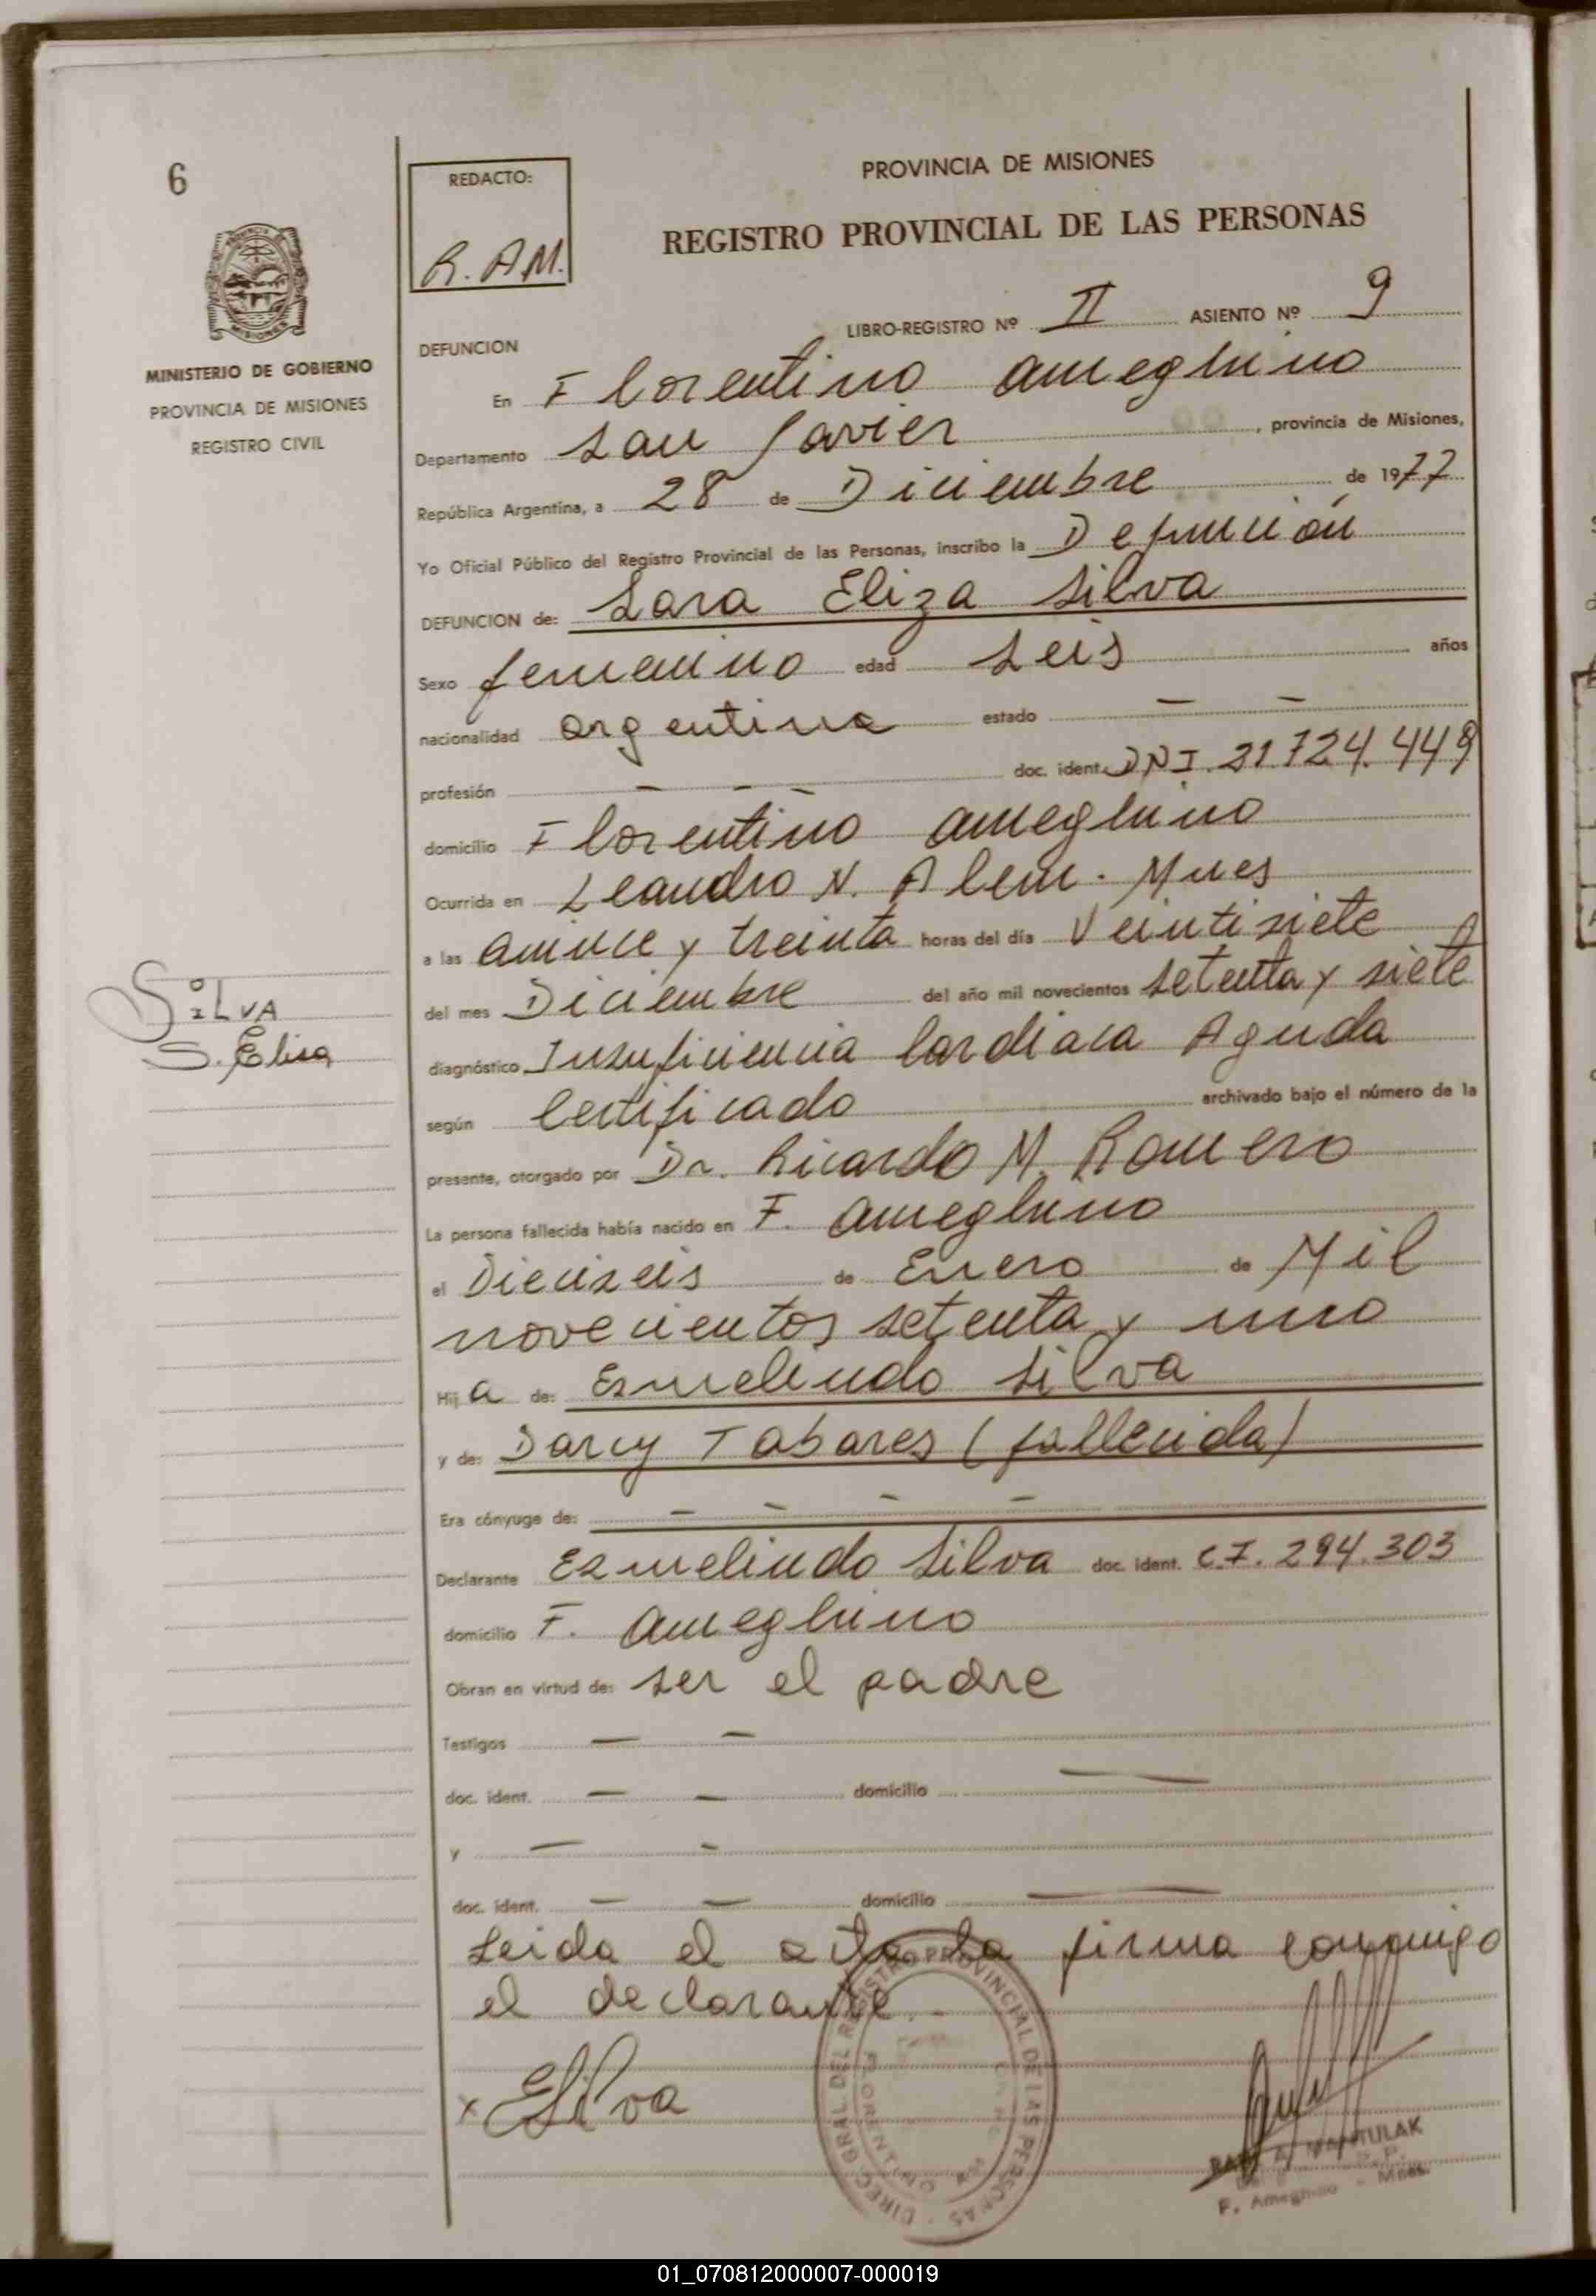 6
REDACTO:
R. AM.
PROVINCIA DE MISIONES
REGISTRO PROVINCIAL DE LAS PERSONAS
MINISTERIO DE GOBIERNO
PROVINCIA DE MISIONES
REGISTRO CIVIL
LIBRO-REGISTRO Nº II ASIENTO Nº 9
DEFUNCION
En Florentino Ameghino
Departamento San Javier, provincia de Misiones,
República Argentina, a 28 de Diciembre de 1977
Yo Oficial Público del Registro Provincial de las Personas, inscribo la Defunción
DEFUNCION de: Sara Eliza Silva
Sexo femenino edad Seis años
nacionalidad Argentina estado — —
profesión — — — doc. ident. DNI. 21.724.449
domicilio Florentino Ameghino
Ocurrida en Leandro N. Alem. Mnes
a las quince y treinta horas del día Veintisiete
del mes Diciembre del año mil novecientos setenta y siete
diagnóstico Insuficiencia Cardiaca Aguda
según Certificado archivado bajo el número de la
presente, otorgado por Dr. Ricardo M. Romero
La persona fallecida había nacido en F. Ameghino
el Dieciseis de Enero de Mil
novecientos setenta y uno
Hija de: Esmelindo Silva
y de: Darcy Tabares (fallecida)
Era cónyuge de: — — — —
Declarante Esmelindo Silva doc. ident. C.I. 294.303
domicilio F. Ameghino
Obran en virtud de: ser el padre
Testigos — —
doc. ident. — — domicilio —
y — —
doc. ident. — — domicilio —
Leida el acta la firma conmigo
el declarante.-
SILVA
S. Elisa
x ESilva
DIREC. GRAL. DEL REGISTRO PROVINCIAL DE LAS PERSONAS
FLORENTINO
MANTULAK
F. Ameghino - Mnes.
01_070812000007-000019